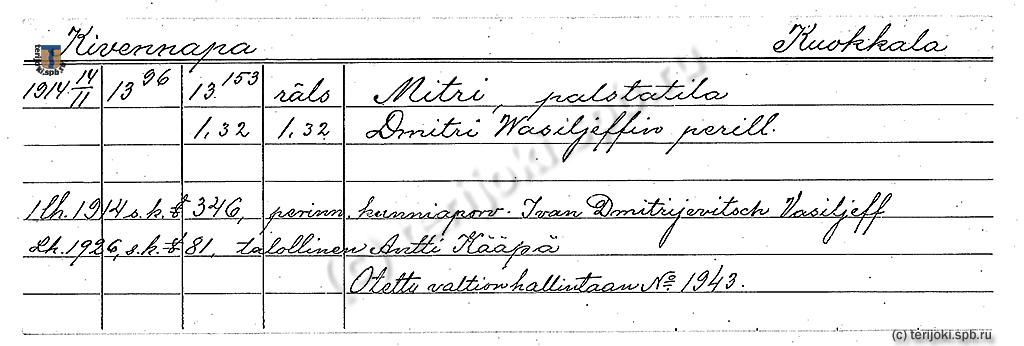 Kivennapa Kuokkala
1914 14/11 13 96 13 153 rälo Mitri, palstatila
1,32 1,32 Dmitri Wasiljeffin perill.
1 lh. 1914 s.k. § 346, perinn. kunniaporv. Ivan Dmitrijevitsch Vasiljeff
Lh. 1926, s.k. § 81, talollinen Antti Kääpä
Otettu valtion hallintaan No 1943.
terijoki.spb.ru
(c) terijoki.spb.ru
(c) terijoki.spb.ru